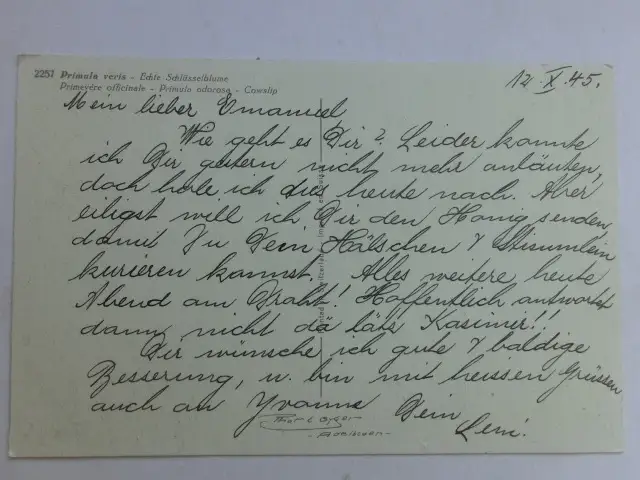 2257 Primula veris - Echte Schlüsselblume
Primevère officinale - Primula odorosa - Cowslip
12.X.45.
Mein lieber Emanuel
Wie geht es Dir? Leider konnte
ich Dir gestern nicht mehr anläuten,
doch hole ich dies heute nach. Aber
eiligst will ich Dir den Honig senden,
damit Du Dein Hälschen & Stimmlein
kurieren kannst. Alles weitere heute
Abend am Draht! Hoffentlich antwortet
dann nicht da läte Kasimir!!
Dir wünsche ich gute & baldige
Besserung, u. bin mit heissen Grüssen
auch an Yvonne Dein
Leni.